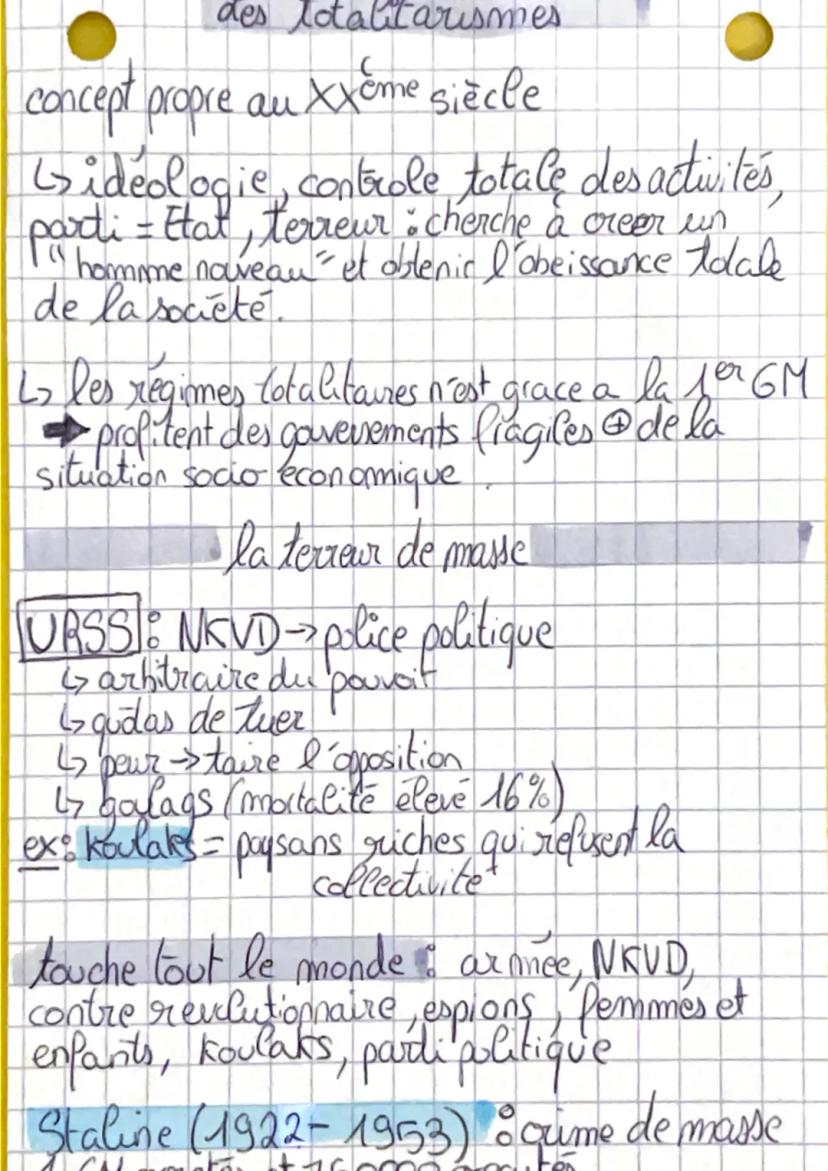 des totalitarismes
concept propre au XXème siècle
↳ idéologie, controle totale des activités,
parti = Etat, terreur : cherche à creer un
"homme nouveau" et obtenir l'obeissance totale
de la société.
↳ les régimes totalitaires n'est grace a la 1er GM
➡ profitent des gouvernements fragiles ⊕ de la
situation socio économique.
la terreur de masse
URSS : NKVD → police politique
↳ arbitraire du pouvoir
↳ de tuer
↳ peur → taire l'opposition
↳ goulags (mortalité élevé 16%)
ex : koulaks = paysans riches qui refusent la
collectivité
touche tout le monde : armée, NKVD,
contre revolutionnaire, espions, femmes et
enfants, koulaks, parti politique
Staline (1922 - 1953) : crime de masse